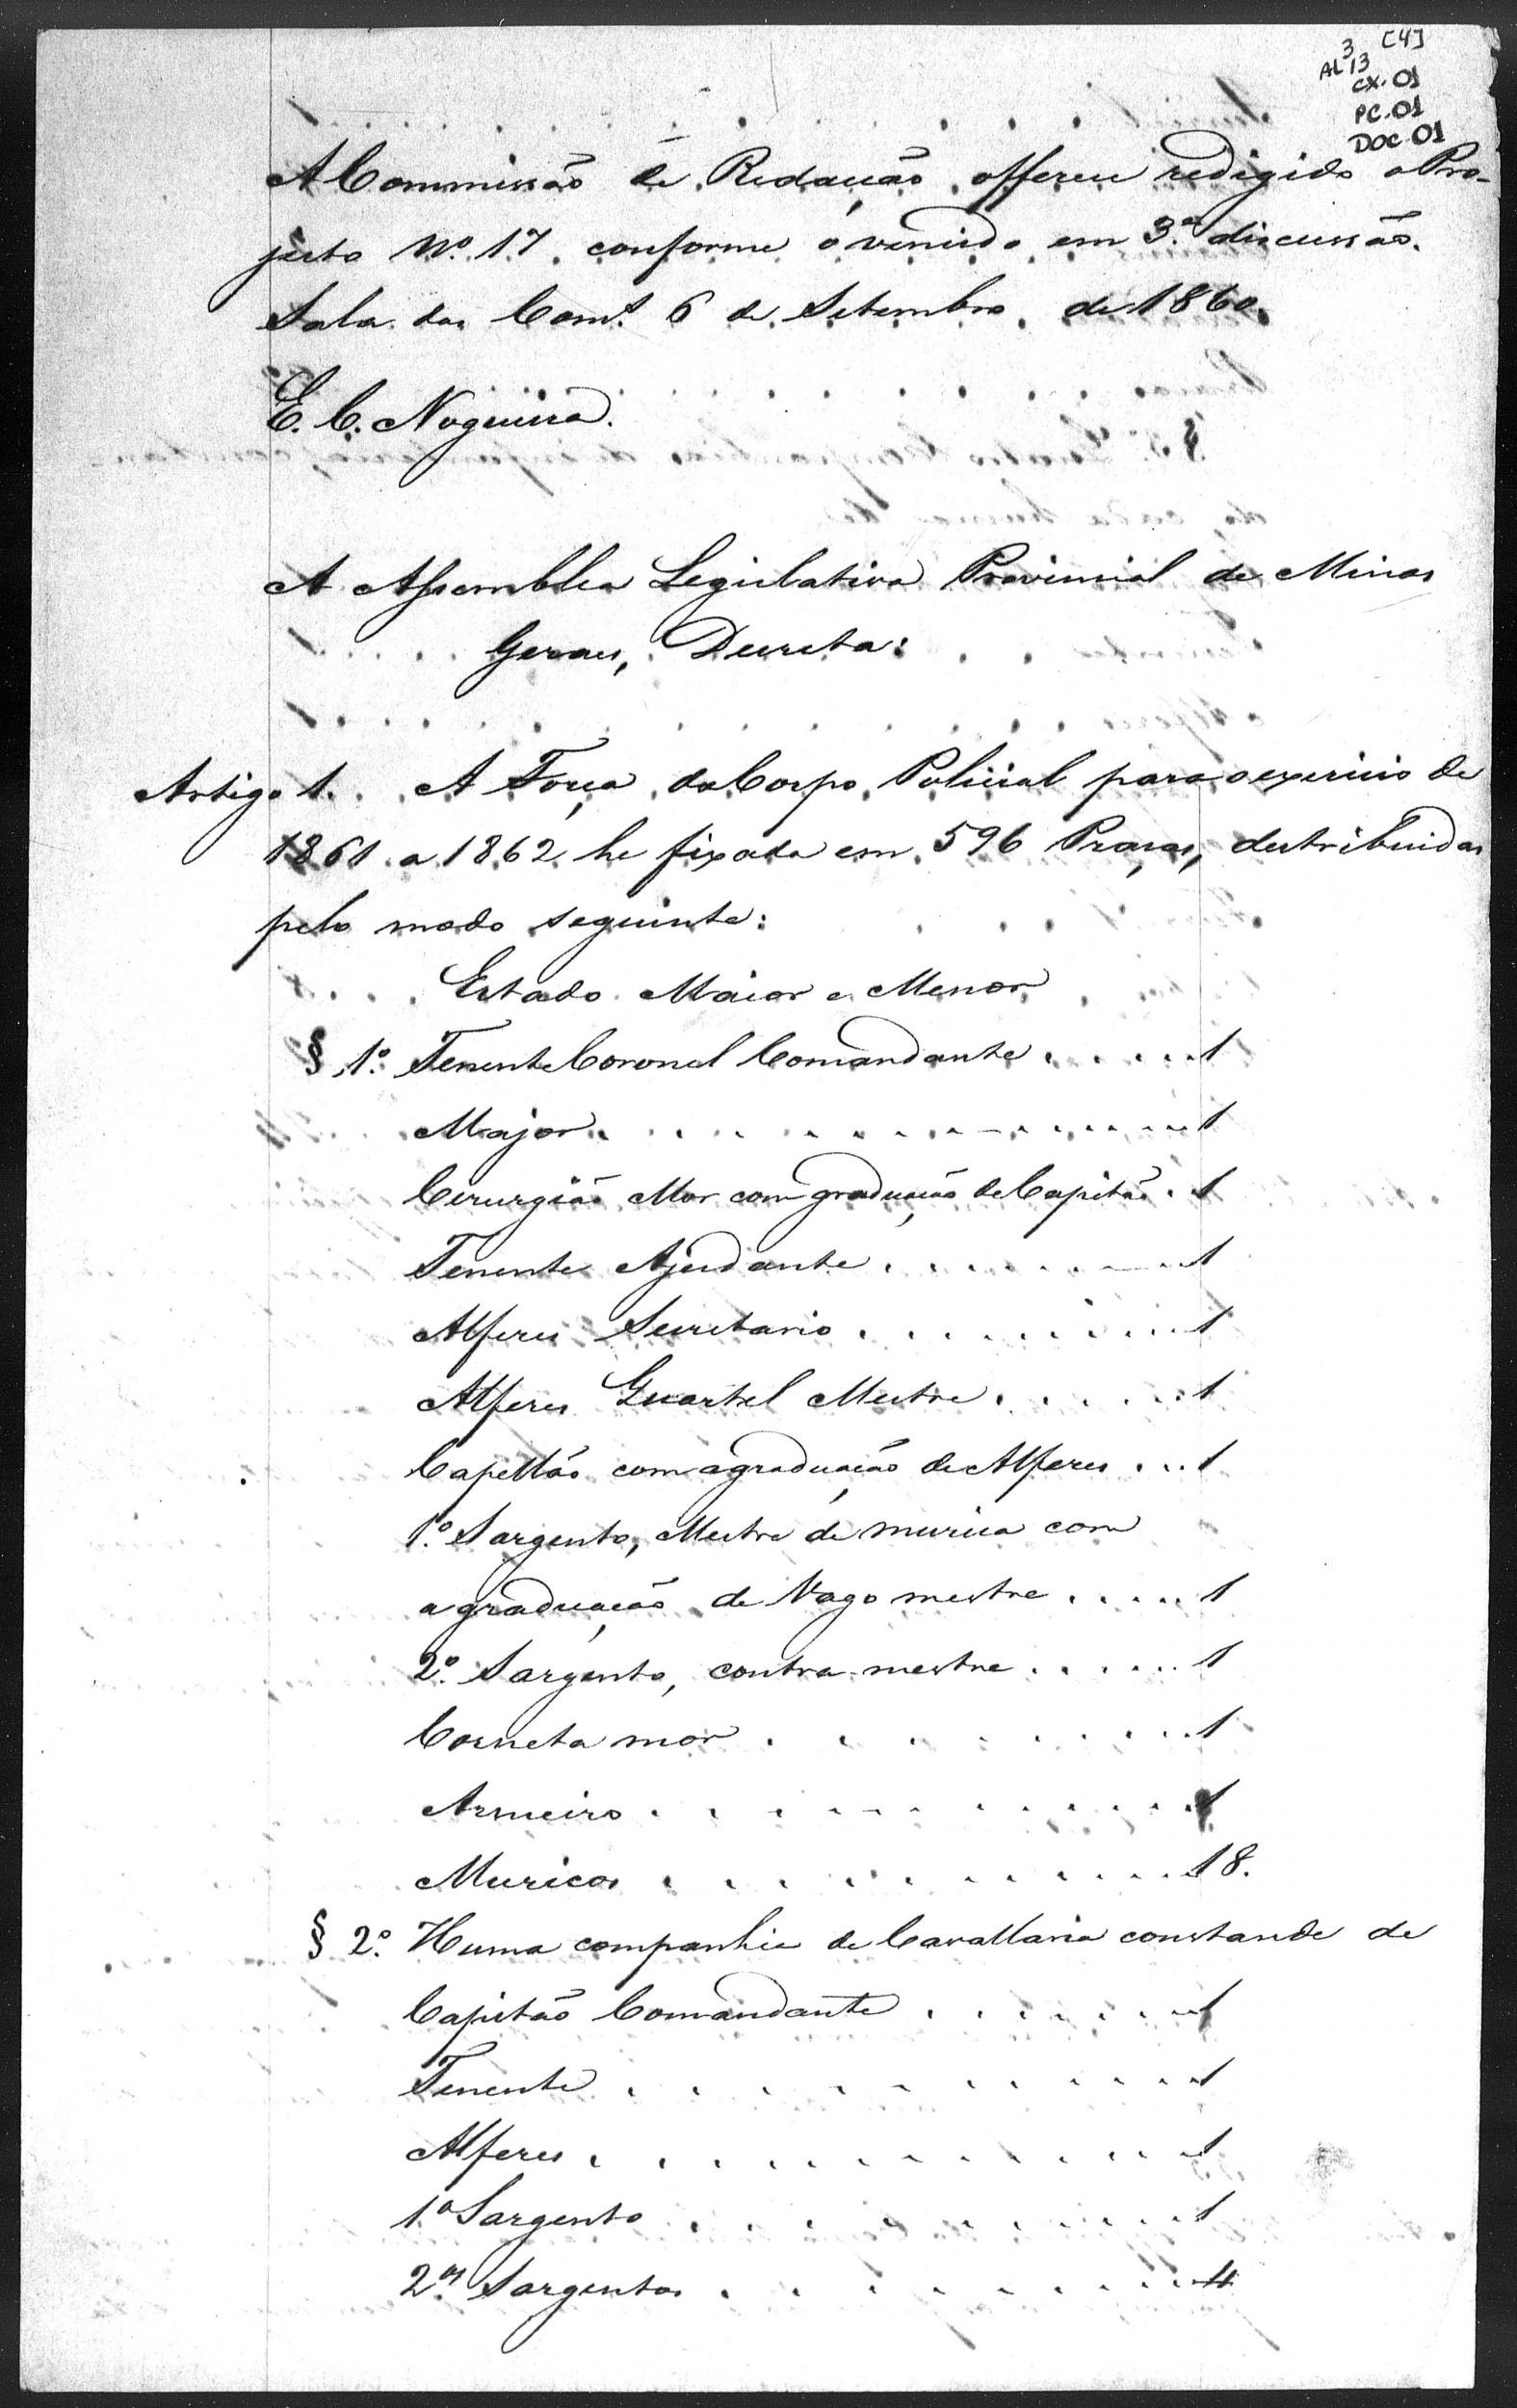 3 [4]
AL 13
CX. 01
PC. 01
DOC. 01
A Commissão de Redacção offerece redigido o Pro-
jecto Nº 17 conforme o vencido em 3ª discussão.
Sala das Comˢ 6 de Setembro de 1860.
E. C. Nogueira.
A Assemblea Legislativa Provincial de Minas
Geraes, Decreta:
Artigo 1. A Força do Corpo Policial para o exercicio de
1861 a 1862 he fixada em 596 Praças, destribuidas
pelo modo seguinte:
Estado Maior e Menor
§ 1º Tenente Coronel Comandante . . . . . 1
Major . . . . . . . . . . . . 1
Cerurgião Mor com graduação de Capitão . 1
Tenente Ajudante . . . . . . . . 1
Alferes Secretario . . . . . . . . . 1
Alferes Quartel Mestre . . . . . . 1
Capellão com a graduação de Alferes . . . 1
1º Sargento, Mestre de musica com
a graduação de Vago mestre . . . . . 1
2º Sargento, contra-mestre . . . . . . 1
Corneta mor . . . . . . . . . 1
Armeiro . . . . . . . . . . . 1
Musicos . . . . . . . . . . . 18.
§ 2º Huma companhia de Cavallaria constande de
Capitão Comandante . . . . . . . 1
Tenente . . . . . . . . . . . 1
Alferes . . . . . . . . . . . 1
1º Sargento . . . . . . . . . . 1
2ºˢ Sargentos . . . . . . . . . . 4